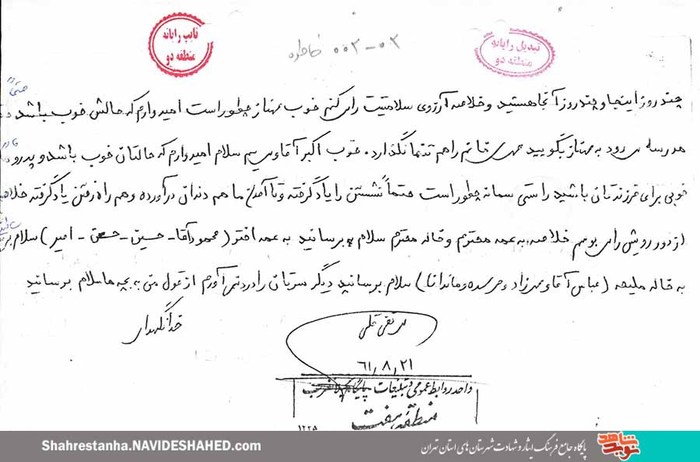 تایپ رایانه
منطقه دو
۰۰۳-۰۳ خاطره
تبدیل رایانه
منطقه دو
چند روز اینجا و چند روز آنجا هستید و خلاصه آرزوی سلامتیت را می کنم خوب مهناز چطور است امیدوارم که حالش خوب باشد
مدرسه می رود به مهناز بگویید خوب اکبر آقا سلام امیدوارم که حالتان خوب باشد و پدر
خوبی برای فرزندتان باشید راستی سمانه چطور است حتماً نشستن را یاد گرفته و تا آمدن ما هم دندان درآورده و هم راه رفتن یاد گرفته
از دور رویش را می بوسم خلاصه به عمه محترم و خاله محترم سلام برسانید به عمه اختر (محمود آقا - حسین - حسن - امیر) سلام
به خاله ملیحه (عباس آقا و سلام برسانید دیگر سرتان را درد نمی آورم از قول من به بچه ها سلام برسانید
خدانگهدار
مرتضی
۶۱,۸,۲۱
واحد روابط عمومی و تبلیغات پایگاه
منطقه هفت
۱۲۲۵
Shahrestanha.NAVIDESHAHED.com
نوید شاهد
پایگاه جامع فرهنگ ایثار و شهادت شهرستان های استان تهران